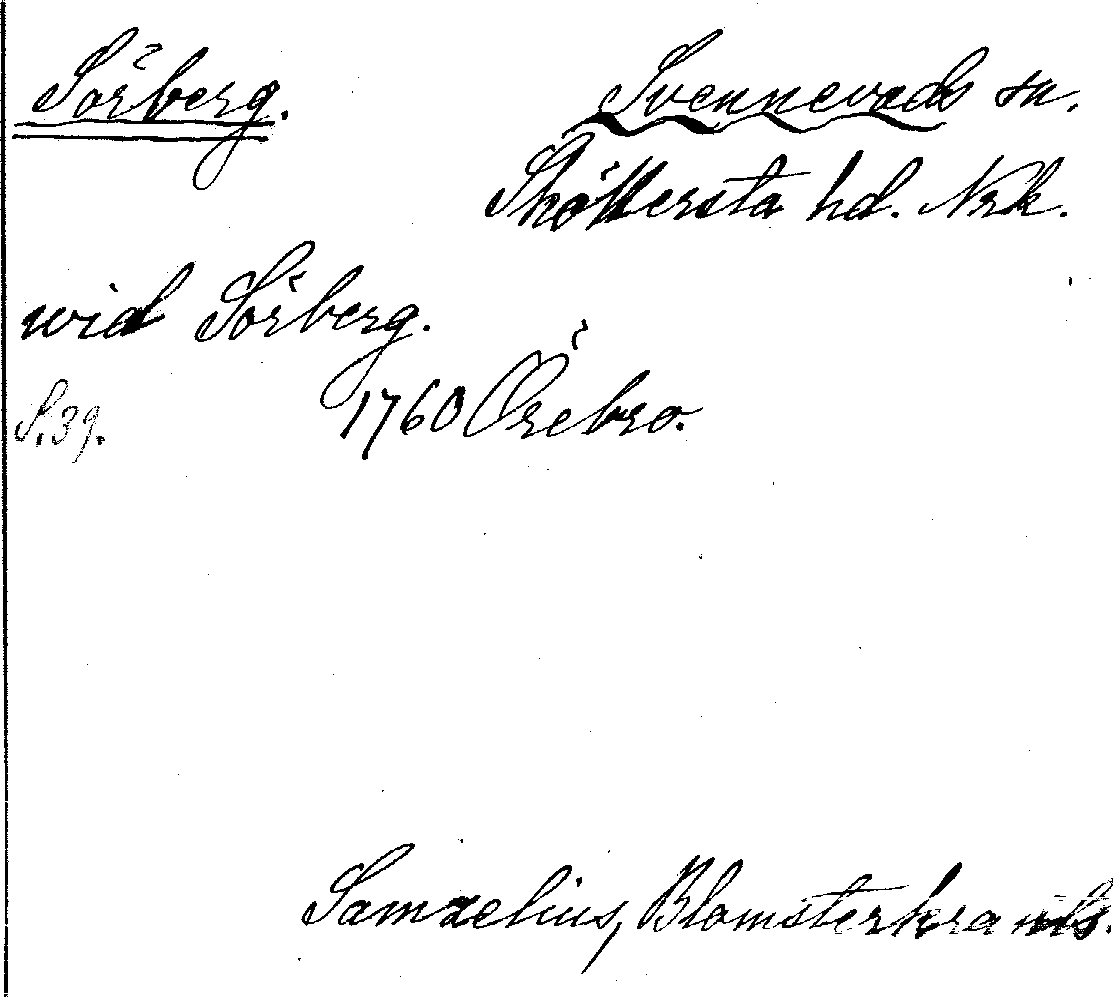 Sörberg.
Svennevads sn.
Sköllersta hd. Nrk.
wid Sörberg.
S. 39. 1760 Örebro.
Samzelius, Blomsterkrants.